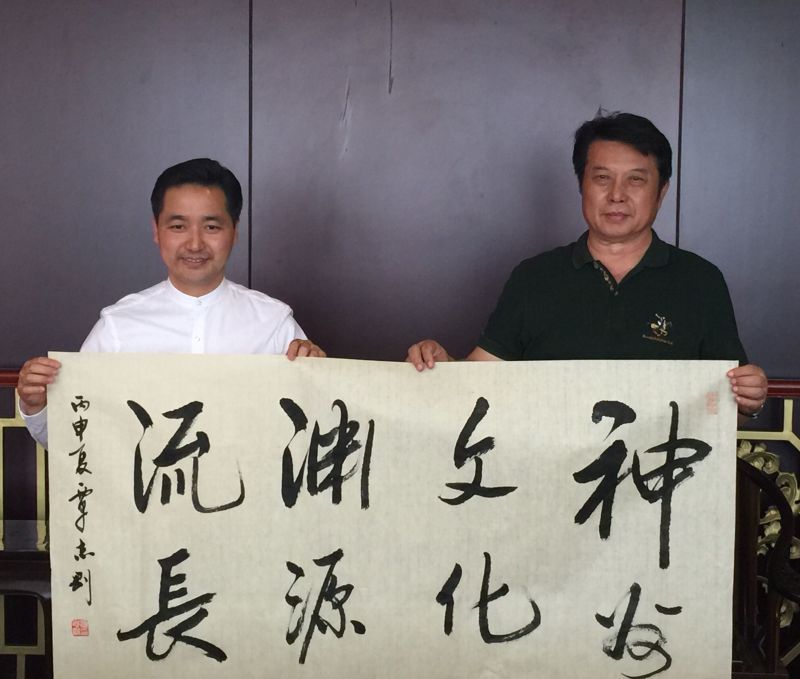 神州
文化
渊源
流長
丙申夏覃志刚